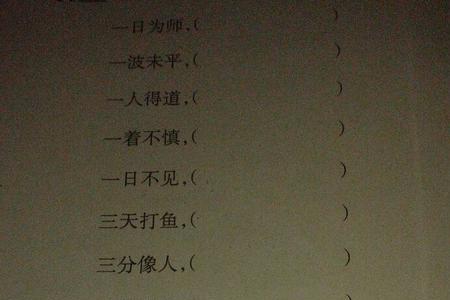 一日为师,(    )
一波未平,(    )
一人得道,(    )
一着不慎,(    )
一日不见,(    )
三天打鱼,(    )
三分像人,(    )